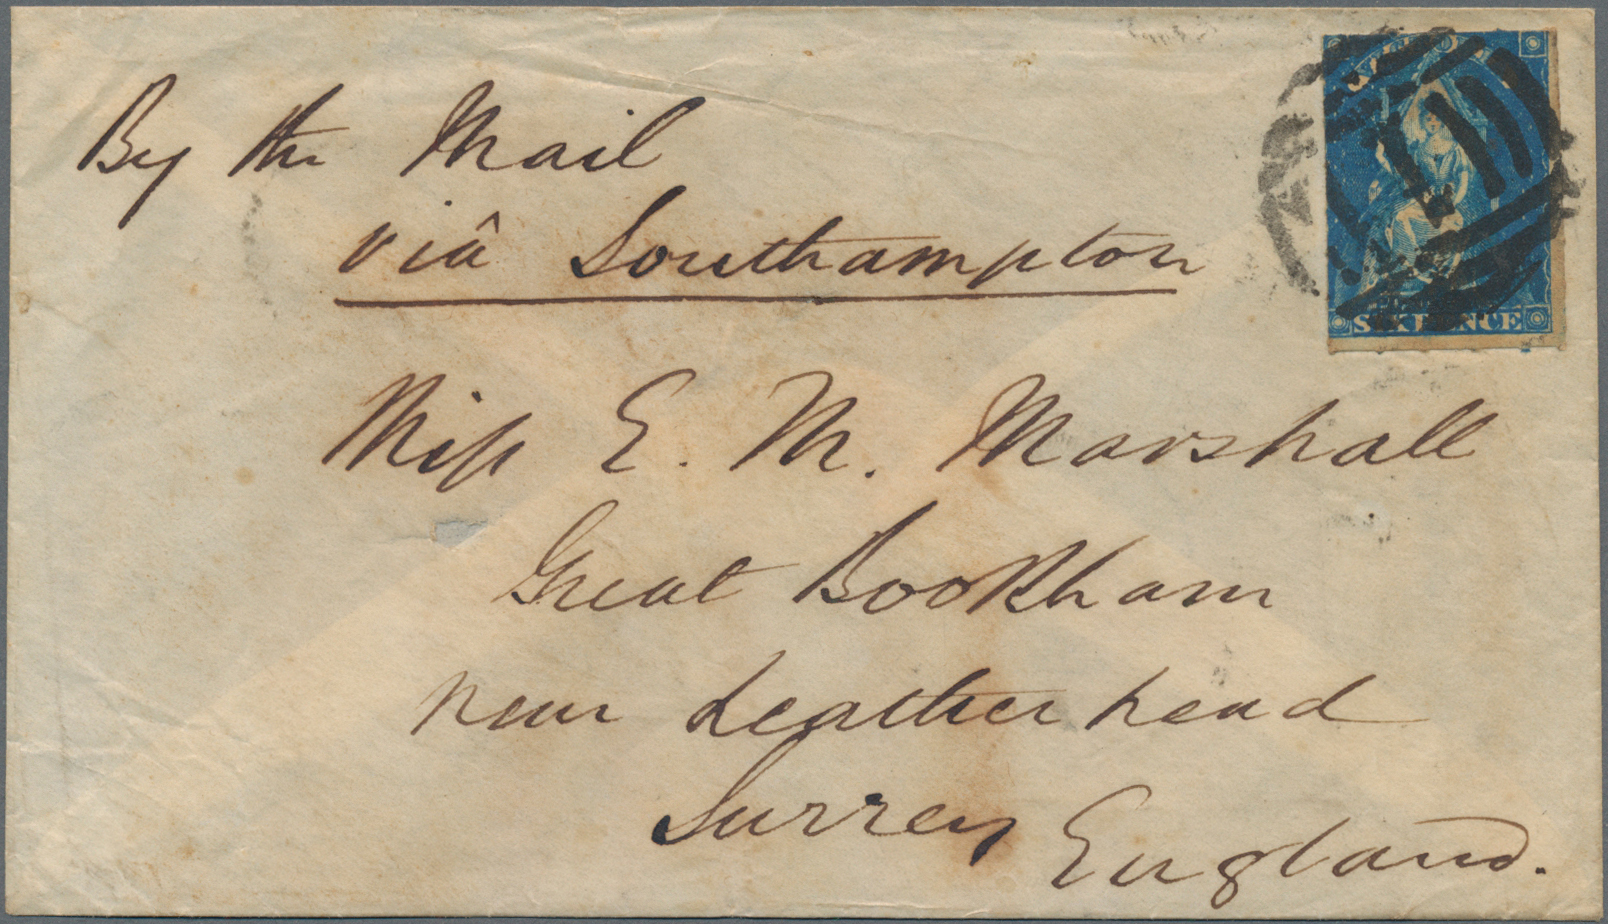 By the Mail
viâ Southampton
Miss E. M. Marshall
Great Bookham
near Leatherhead
Surrey England.
VICTORIA
1
SIX PENCE